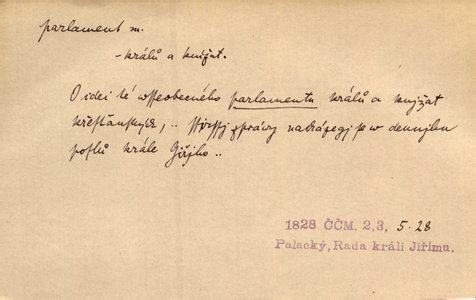 parlament m.
- králů a knížat.
O idei té wsseobecného parlamentu králů a knjžat
křesťanských, .. ssirssj zpráwy nacházegj se w dennjku
poslů krále Giřjho ..
1828 ČČM. 2,3, 5.28
Palacký, Rada králi Jiřímu.